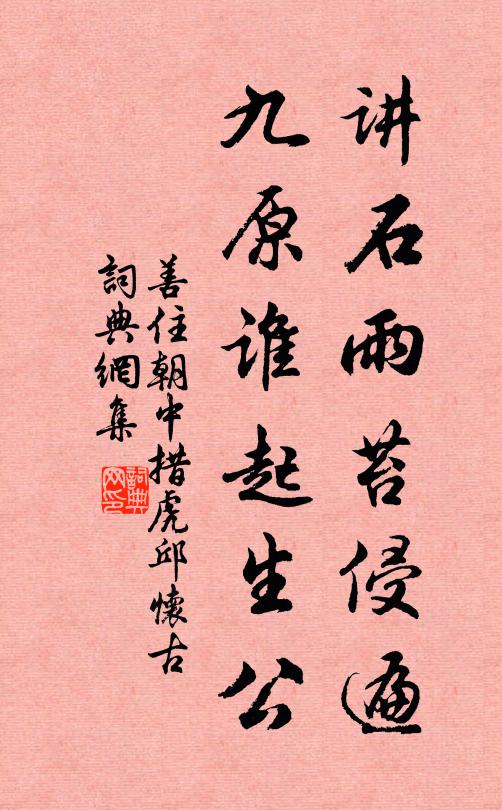 讲石雨苔侵遍
九原谁起生公
善住朝中措虎邱懷古
詞典網集
詞典網印